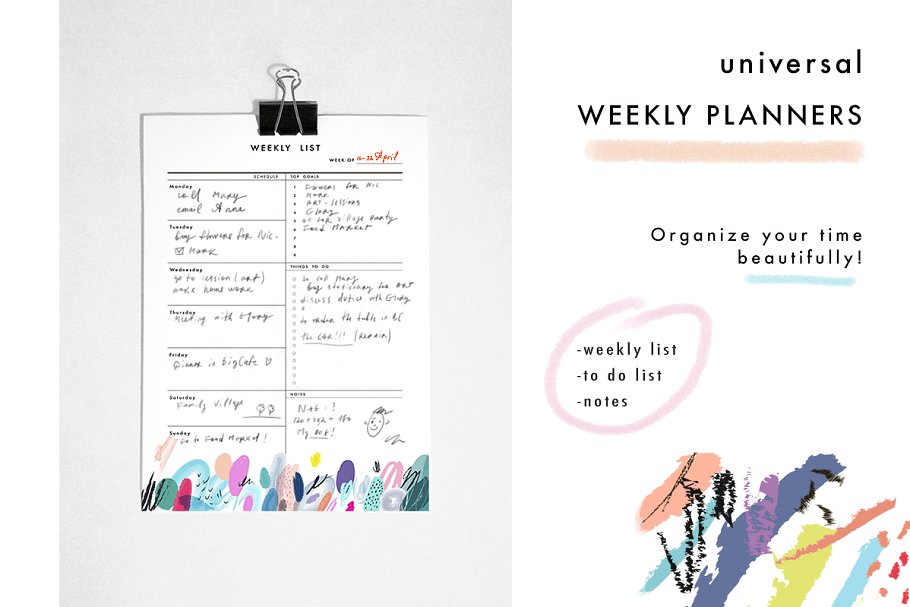 WEEKLY LIST
WEEK OF April
SCHEDULE
Monday
call Mary
email Anne
Tuesday
buy flowers for Nic.
Mark
Wednesday
go to lession (art)
make home work
Thursday
meeting with Glory
Friday
Dinner in BigCafe
Saturday
Family Village
Sunday
Go to Food Market!
TOP GOALS
1 Flowers for Nic
2 Mark
3 Art-lessions
4 Glory
5 for village party
6 Food Market
7
8
9
THINGS TO DO
call Mary
buy stationary for ART
discuss duties with Glory
to order the table in BC
the CAR!!! (Repair)
NOTES
My!
universal
WEEKLY PLANNERS
Organize your time
beautifully!
-weekly list
-to do list
-notes